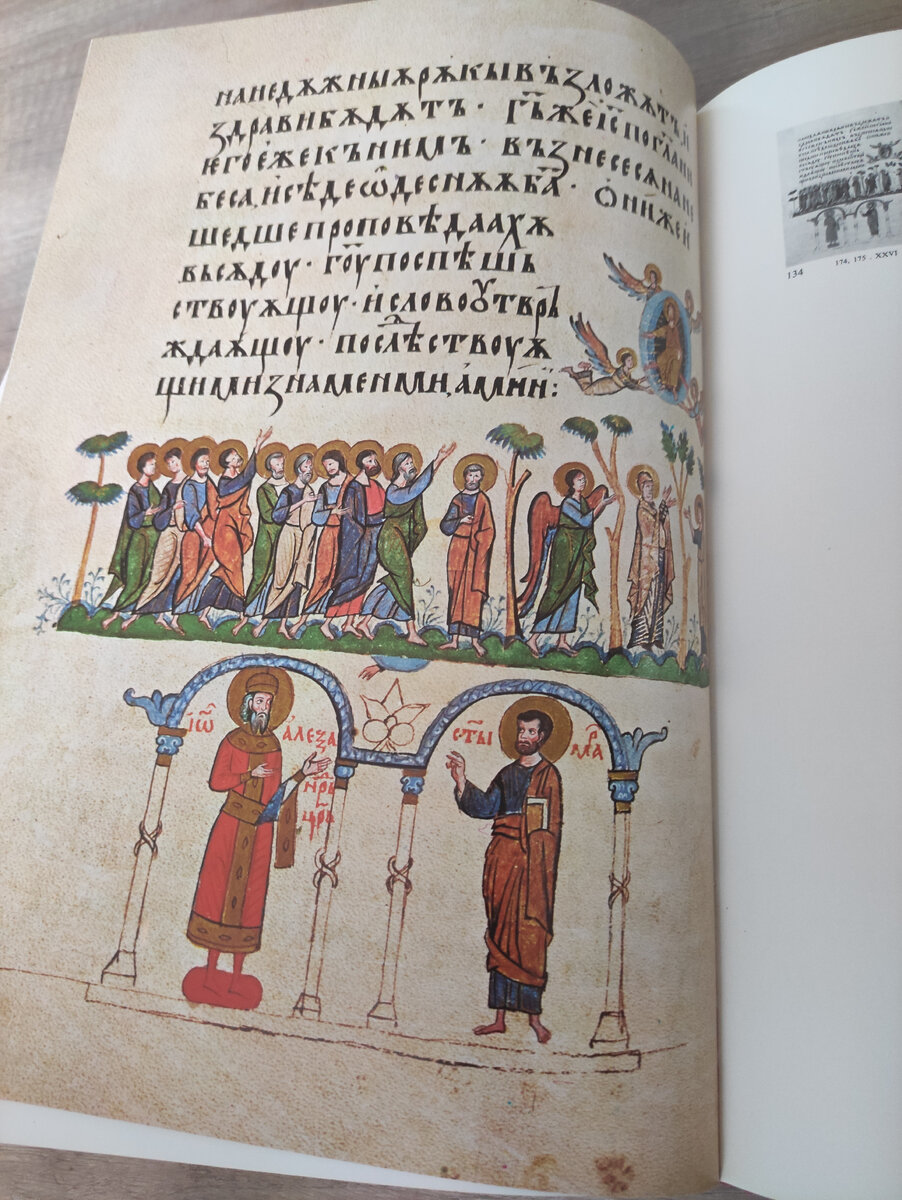 на недѫжныѧ рѫкы възложѧтъ, и
здрави бѫдѫтъ · г҃ъ же і҃с по гл҃ани
его еже къ ним · възнесе сѧ на н
беса, и сѣде ѡ деснѫѫ б҃а · Они же и
шедше проповѣдаахѫ
вьсѫдоу · г҃оу поспѣшь
ствоуѫщоу · и слово утврь
ждаѫщоу · послѣствоуѫ
щими знаменми, амин҃ :
і҃ѡ
але҃за
нрь
цр҃ь
ст҃ы
мар
134
174, 175 . XXVI